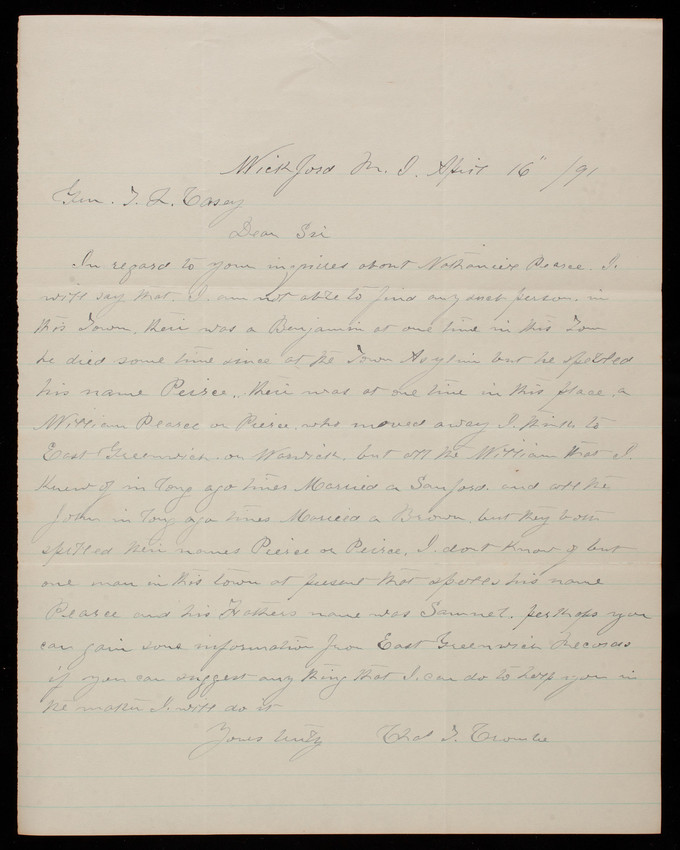 Wickford R. I. April 16" /91
Gen. T. L. Casey
Dear Sir
In regard to your inquires about Nathaniel Pearce. I
will say that. I. am not able to find any such person. in
this Town. their was a Benjamin at one time in this Town
he died some time since at the Town Asylum but he spelled
his name Peirce,. their was at one time in this place. a
William Pearce or Pierce, who moved away I. think to
East Greenwich or Warwick. but all the William that I.
knew of in long ago times Married a Sanford. and all the
John in long ago times Married a Brown. but they both
spelled their names Pierce or Peirce, I. dont know of but
one man in this town at present that spells his name
Pearce and his Fathers name was Samuel. perhaps you
can gain some information from East Greenwich Records
if you can suggest any thing that I can do to help you in
the matter I. will do it
Yours truly Chas T. Crombe